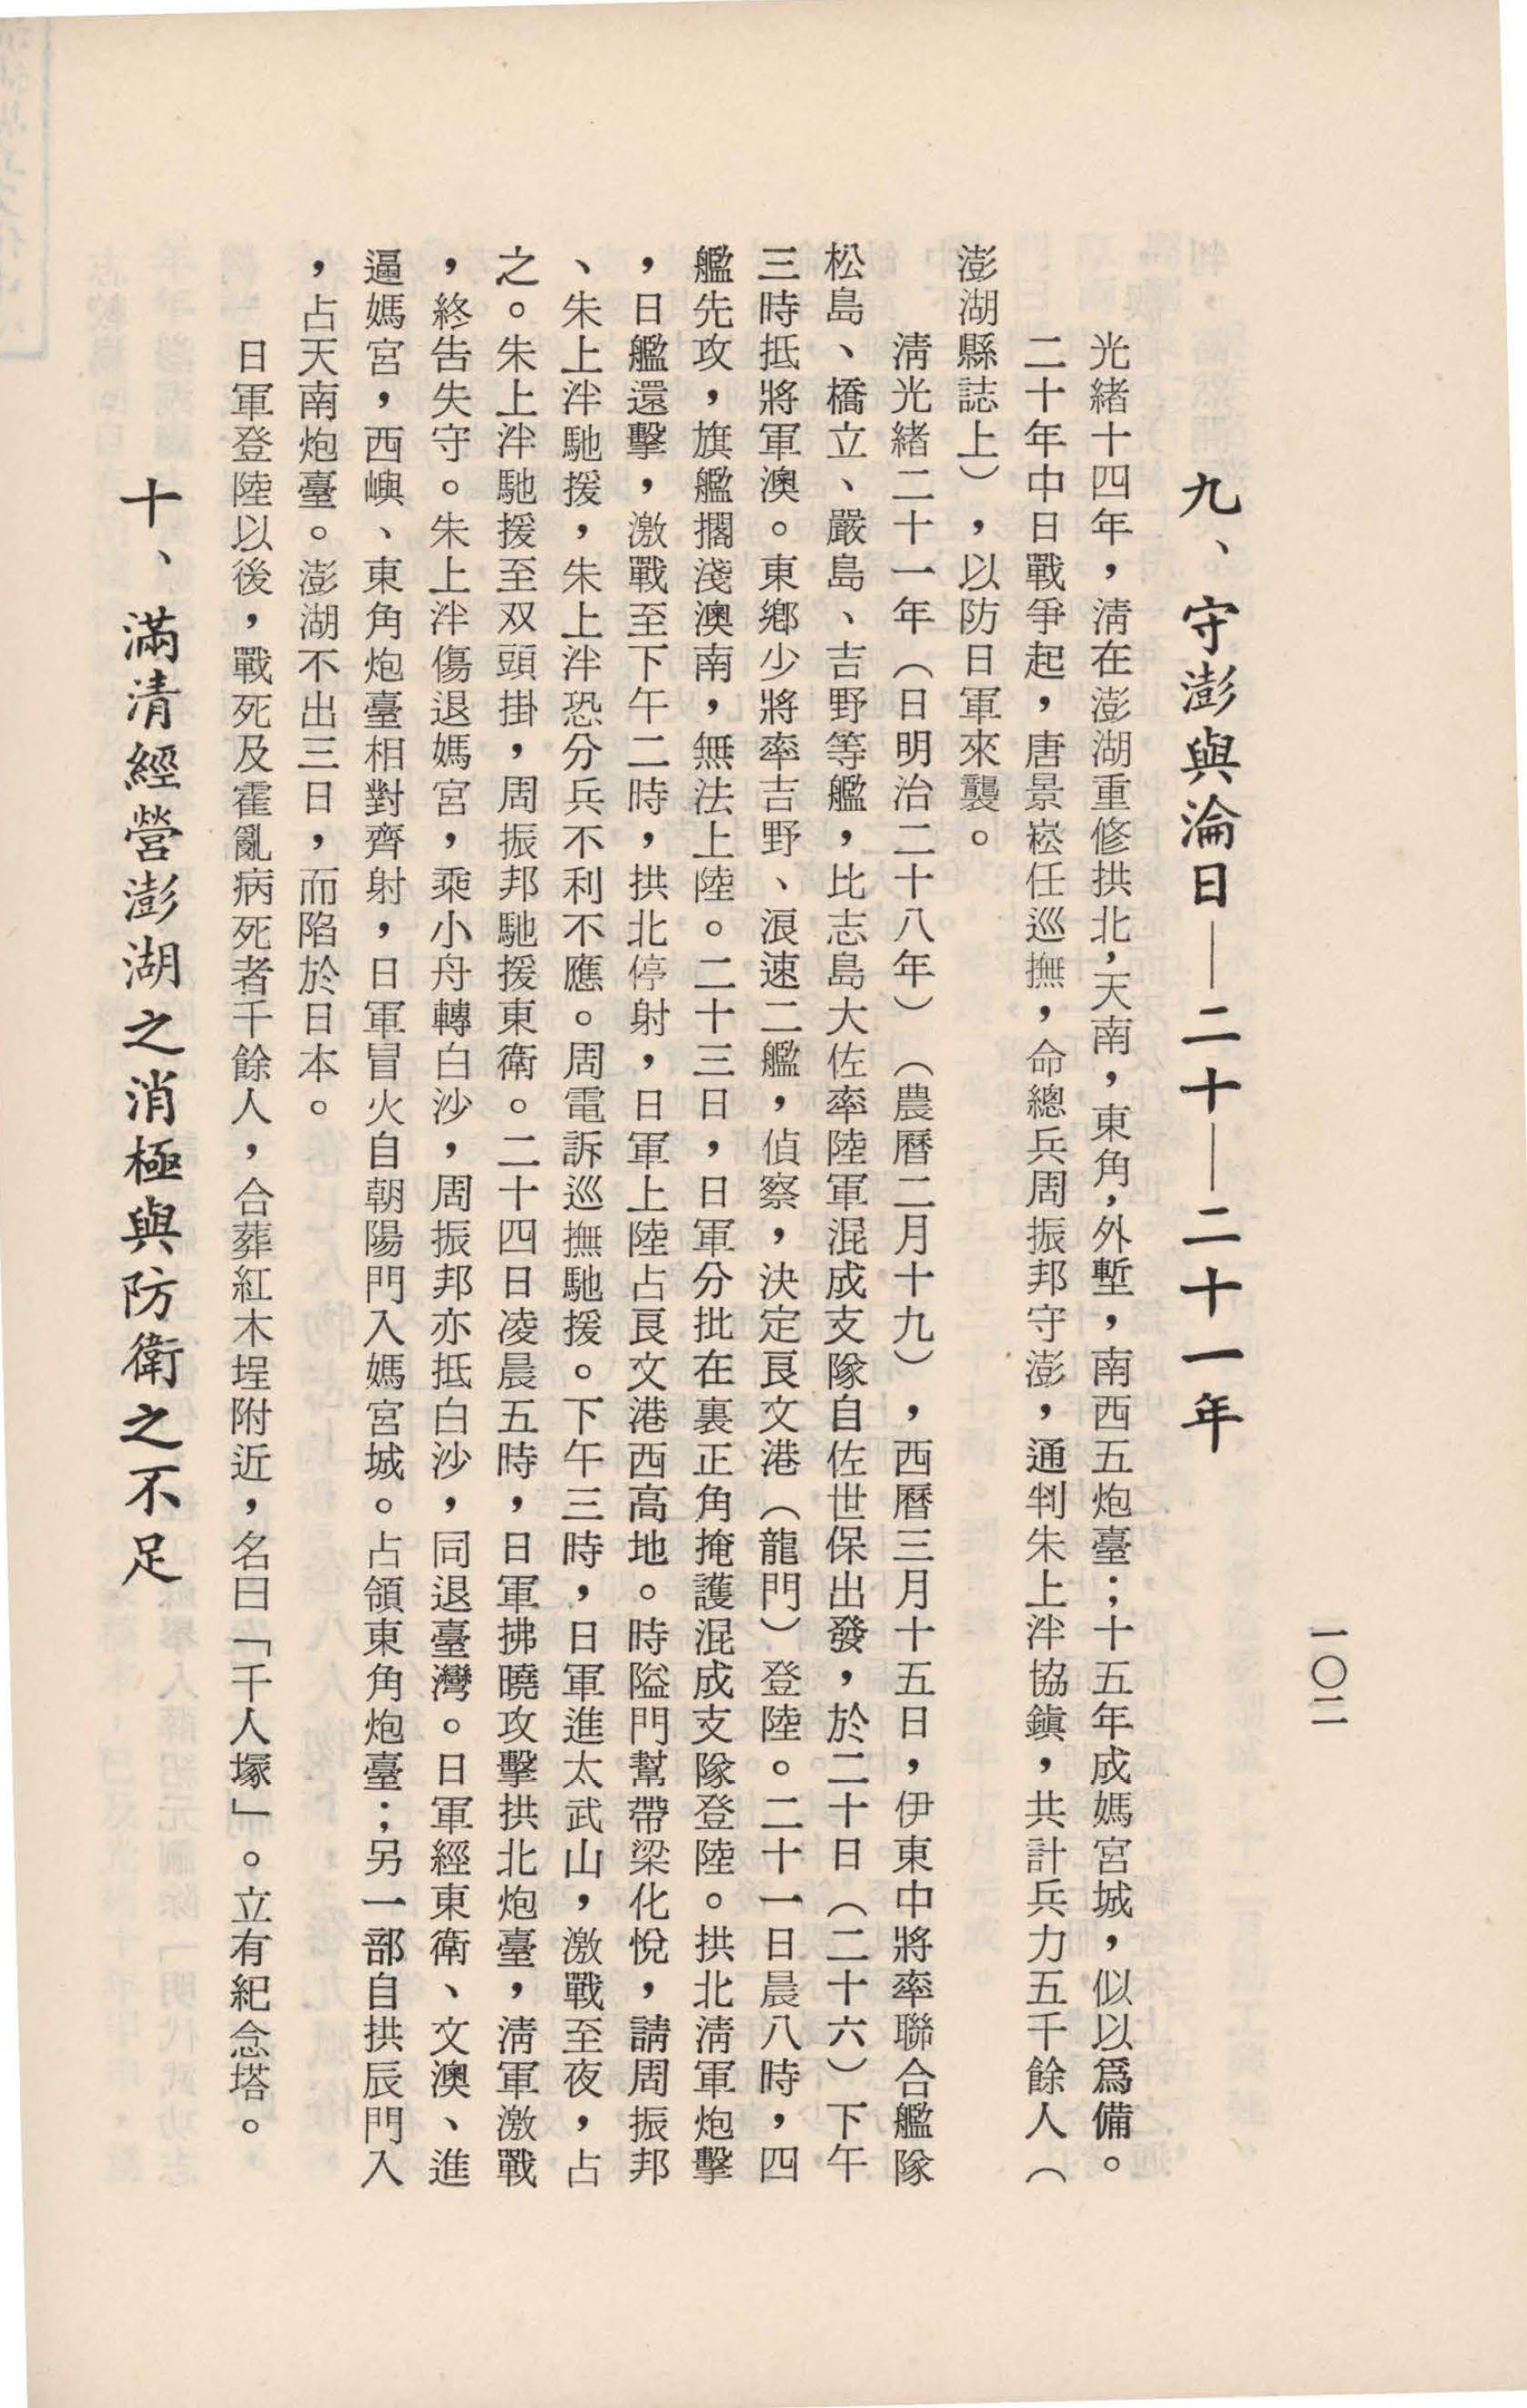 一〇二
九、守澎與淪日——二十——二十一年
光緒十四年，淸在澎湖重修拱北，天南，東角，外塹，南西五炮臺；十五年成媽宮城，似以爲備。
二十年中日戰爭起，唐景崧任巡撫，命總兵周振邦守澎，通判朱上泮協鎭，共計兵力五千餘人（
澎湖縣誌上），以防日軍來襲。
淸光緒二十一年（日明治二十八年）（農曆二月十九），西曆三月十五日，伊東中將率聯合艦隊
松島、橋立、嚴島、吉野等艦，比志島大佐率陸軍混成支隊自佐世保出發，於二十日（二十六）下午
三時抵將軍澳。東鄕少將率吉野、浪速二艦，偵察，決定良文港（龍門）登陸。二十一日晨八時，四
艦先攻，旗艦擱淺澳南，無法上陸。二十三日，日軍分批在裏正角掩護混成支隊登陸。拱北淸軍炮擊
，日艦還擊，激戰至下午二時，拱北停射，日軍上陸占良文港西高地。時隘門幫帶梁化悅，請周振邦
、朱上泮馳援，朱上泮恐分兵不利不應。周電訴巡撫馳援。下午三時，日軍進太武山，激戰至夜，占
之。朱上泮馳援至双頭掛，周振邦馳援東衛。二十四日凌晨五時，日軍拂曉攻擊拱北炮臺，淸軍激戰
，終告失守。朱上泮傷退媽宮，乘小舟轉白沙，周振邦亦抵白沙，同退臺灣。日軍經東衛、文澳、進
逼媽宮，西嶼、東角炮臺相對齊射，日軍冒火自朝陽門入媽宮城。占領東角炮臺；另一部自拱辰門入
，占天南炮臺。澎湖不出三日，而陷於日本。
日軍登陸以後，戰死及霍亂病死者千餘人，合葬紅木埕附近，名曰「千人塚」。立有紀念塔。
十、滿清經營澎湖之消極與防衛之不足